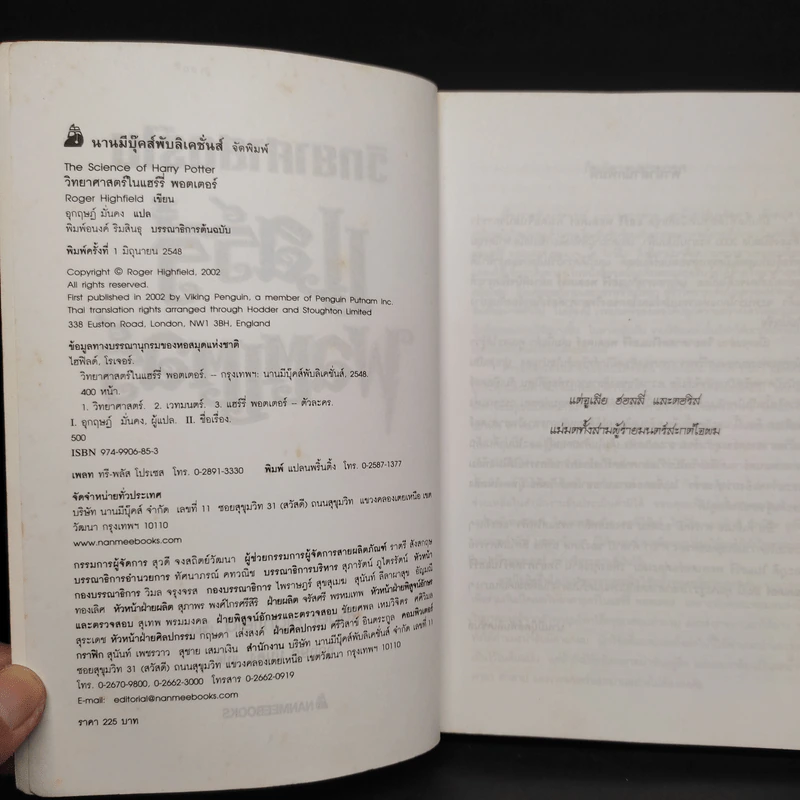 นานมีบุ๊คส์พับลิเคชั่นส์ จัดพิมพ์
The Science of Harry Potter
วิทยาศาสตร์ในแฮร์รี่ พอตเตอร์
Roger Highfield เขียน
อุกฤษฏ์ มั่นคง แปล
พิมพ์อนงค์ ริมสินธุ บรรณาธิการต้นฉบับ
พิมพ์ครั้งที่ 1 มิถุนายน 2548
Copyright © Roger Highfield, 2002
All rights reserved.
First published in 2002 by Viking Penguin, a member of Penguin Putnam Inc.
Thai translation rights arranged through Hodder and Stoughton Limited
338 Euston Road, London, NW1 3BH, England
ข้อมูลทางบรรณานุกรมของหอสมุดแห่งชาติ
ไฮฟิลด์, โรเจอร์.
วิทยาศาสตร์ในแฮร์รี่ พอตเตอร์. – กรุงเทพฯ: นานมีบุ๊คส์พับลิเคชั่นส์, 2548.
400 หน้า.
1. วิทยาศาสตร์. 2. เวทมนตร์. 3. แฮร์รี่ พอตเตอร์ – ตัวละคร.
I. อุกฤษฏ์ มั่นคง, ผู้แปล. II. ชื่อเรื่อง.
500
ISBN 974-9906-85-3
เพลท ทรี-พลัส โปรเซส โทร. 0-2891-3330 พิมพ์ แปลนพริ้นติ้ง โทร. 0-2587-1377
จัดจำหน่ายทั่วประเทศ
บริษัท นานมีบุ๊คส์ จำกัด เลขที่ 11 ซอยสุขุมวิท 31 (สวัสดี) ถนนสุขุมวิท แขวงคลองเตยเหนือ เขต
วัฒนา กรุงเทพฯ 10110
www.nanmeebooks.com
กรรมการผู้จัดการ สุวดี จงสถิตย์วัฒนา ผู้ช่วยกรรมการผู้จัดการสายผลิตภัณฑ์ ราตรี สังตกฤษ
บรรณาธิการอำนวยการ ทัศนาภรณ์ คทวณิช บรรณาธิการบริหาร สุภารัตน์ ภูไตรรัตน์ หัวหน้า
กองบรรณาธิการ วิมล จรุงจรส กองบรรณาธิการ ไพราษฎร์ สุขสุเมฆ สุนันท์ ลีลาผาสุข อัญมณี
ทองเลิศ หัวหน้าฝ่ายผลิต สุภาพร พงศ์ไกรศรีสิริ ฝ่ายผลิต จรัสศรี พรหมเทพ หัวหน้าฝ่ายพิสูจน์อักษร
และตรวจสอบ สุเทพ พรมมงคล ฝ่ายพิสูจน์อักษรและตรวจสอบ ชัยยศพล เหมวิจิตร ศศิวิมล
สุระเดช หัวหน้าฝ่ายศิลปกรรม กฤษดา เส่งสงค์ ฝ่ายศิลปกรรม ศรีวิสาข์ อินตระกูล คอมพิวเตอร์
กราฟิก สุนันท์ เพชรวาว สุชาย เสมาเงิน สำนักงาน บริษัท นานมีบุ๊คส์พับลิเคชั่นส์ จำกัด เลขที่ 11
ซอยสุขุมวิท 31 (สวัสดี) ถนนสุขุมวิท แขวงคลองเตยเหนือ เขตวัฒนา กรุงเทพฯ 10110
โทร. 0-2670-9800, 0-2662-3000 โทรสาร 0-2662-0919
E-mail: editorial@nanmeebooks.com
ราคา 225 บาท
แด่จูเลีย ฮอลลี่ และดอริส
แม่มดทั้งสามผู้ร่ายมนตร์สะกดใจผม